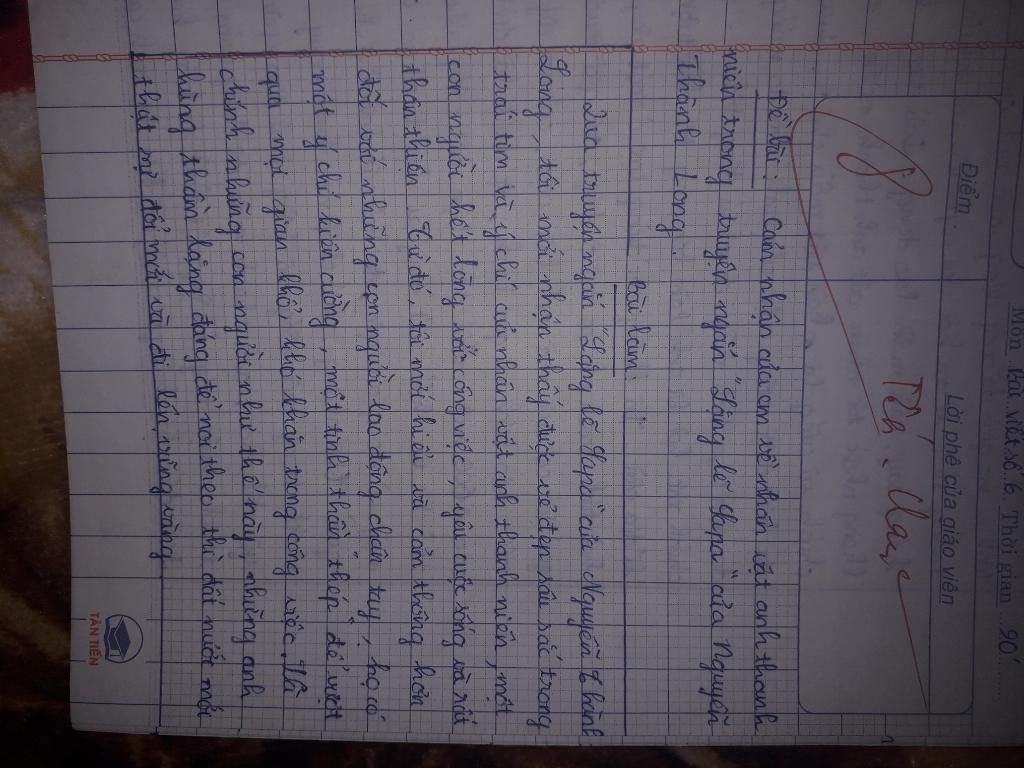 Môn bài viết số 6. Thời gian...90'.......
Điểm
Lời phê của giáo viên
8
Đề bài: Cảm nhận của em về nhân vật anh thanh
niên trong truyện ngắn "Lặng lẽ Sapa" của Nguyễn
Thành Long.
bài làm.
Qua truyện ngắn "Lặng lẽ Sapa" của Nguyễn Thành
Long, tôi mới nhận thấy được vẻ đẹp sâu sắc trong
trái tim và ý chí của nhân vật anh thanh niên, một
con người hết lòng với công việc, yêu cuộc sống và rất
thân thiện. Từ đó, tôi mới hiểu và cảm thông hơn
đối với những con người lao động chân tay, họ có
một ý chí kiên cường, một tinh thần "thép" để vượt
qua mọi gian khổ, khó khăn trong công việc. Và
chính những con người như thế này, những anh
hùng thầm lặng đáng để noi theo thì đất nước mới
thật sự đổi mới và đi lên vững vàng
TÂN TIẾN